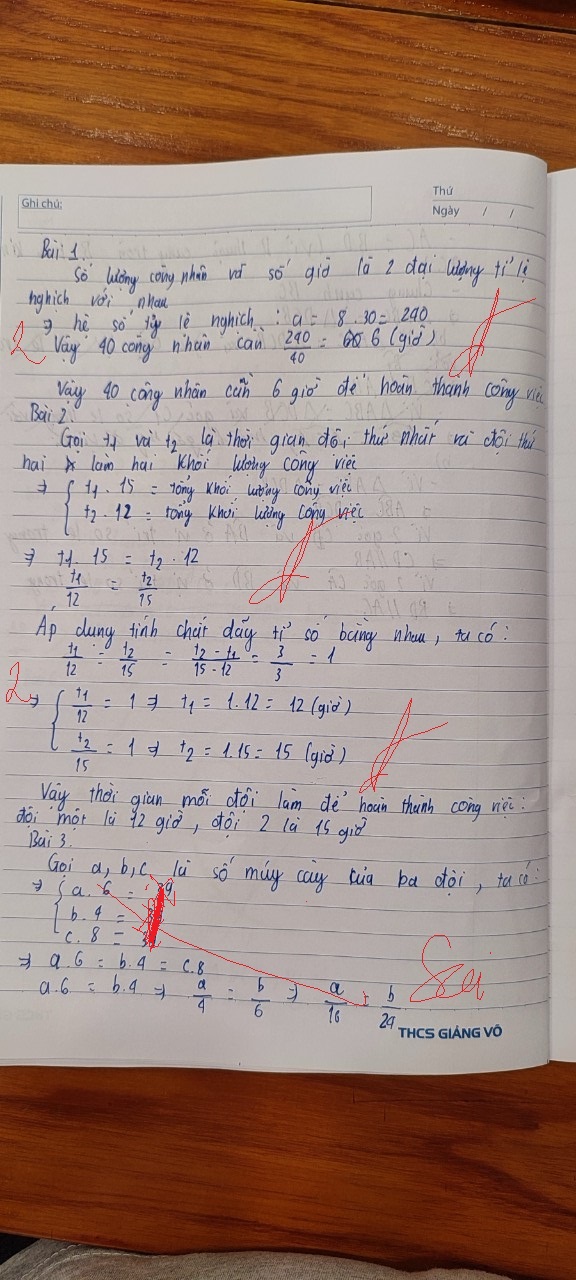 Ghi chú:
Thứ
Ngày / /
Bài 1
Số lượng công nhân và số giờ là 2 đại lượng tỉ lệ
nghịch với nhau
⇒ hệ số tỷ lệ nghịch : a = 8 . 30 = 240
2 Vậy 40 công nhân cần 240/40 = 6 (giờ)
Vậy 40 công nhân cần 6 giờ để hoàn thành công việc
Bài 2
Gọi t1 và t2 là thời gian đội thứ nhất và đội thứ
hai làm hai khối lượng công việc
⇒ { t1 . 15 = tổng khối lượng công việc
t2 . 12 = tổng khối lượng công việc
⇒ t1 . 15 = t2 . 12
t1/12 = t2/15
Áp dụng tính chất dãy tỉ số bằng nhau, ta có :
t1/12 = t2/15 = t2 - t1/15 - 12 = 3/3 = 1
2 ⇒ { t1/12 = 1 ⇒ t1 = 1.12 = 12 (giờ)
t2/15 = 1 ⇒ t2 = 1.15 = 15 (giờ)
Vậy thời gian mỗi đội làm để hoàn thành công việc :
đội một là 12 giờ, đội 2 là 15 giờ
Bài 3
Gọi a, b, c là số máy cày của ba đội, ta có:
⇒ { a . 6 =
b . 4 =
c . 8 =
⇒ a.6 = b.4 = c.8
a.6 = b.4 ⇒ a/4 = b/6 ⇒ a/16 = b/24
Sai
THCS GIẢNG VÕ